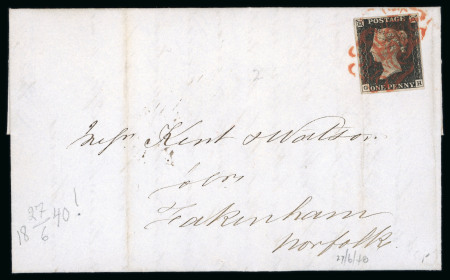 POSTAGE
ONE PENNY
Messrs Kent & Watson
Fakenham
Norfolk
27/6/40
18 27/6 40!